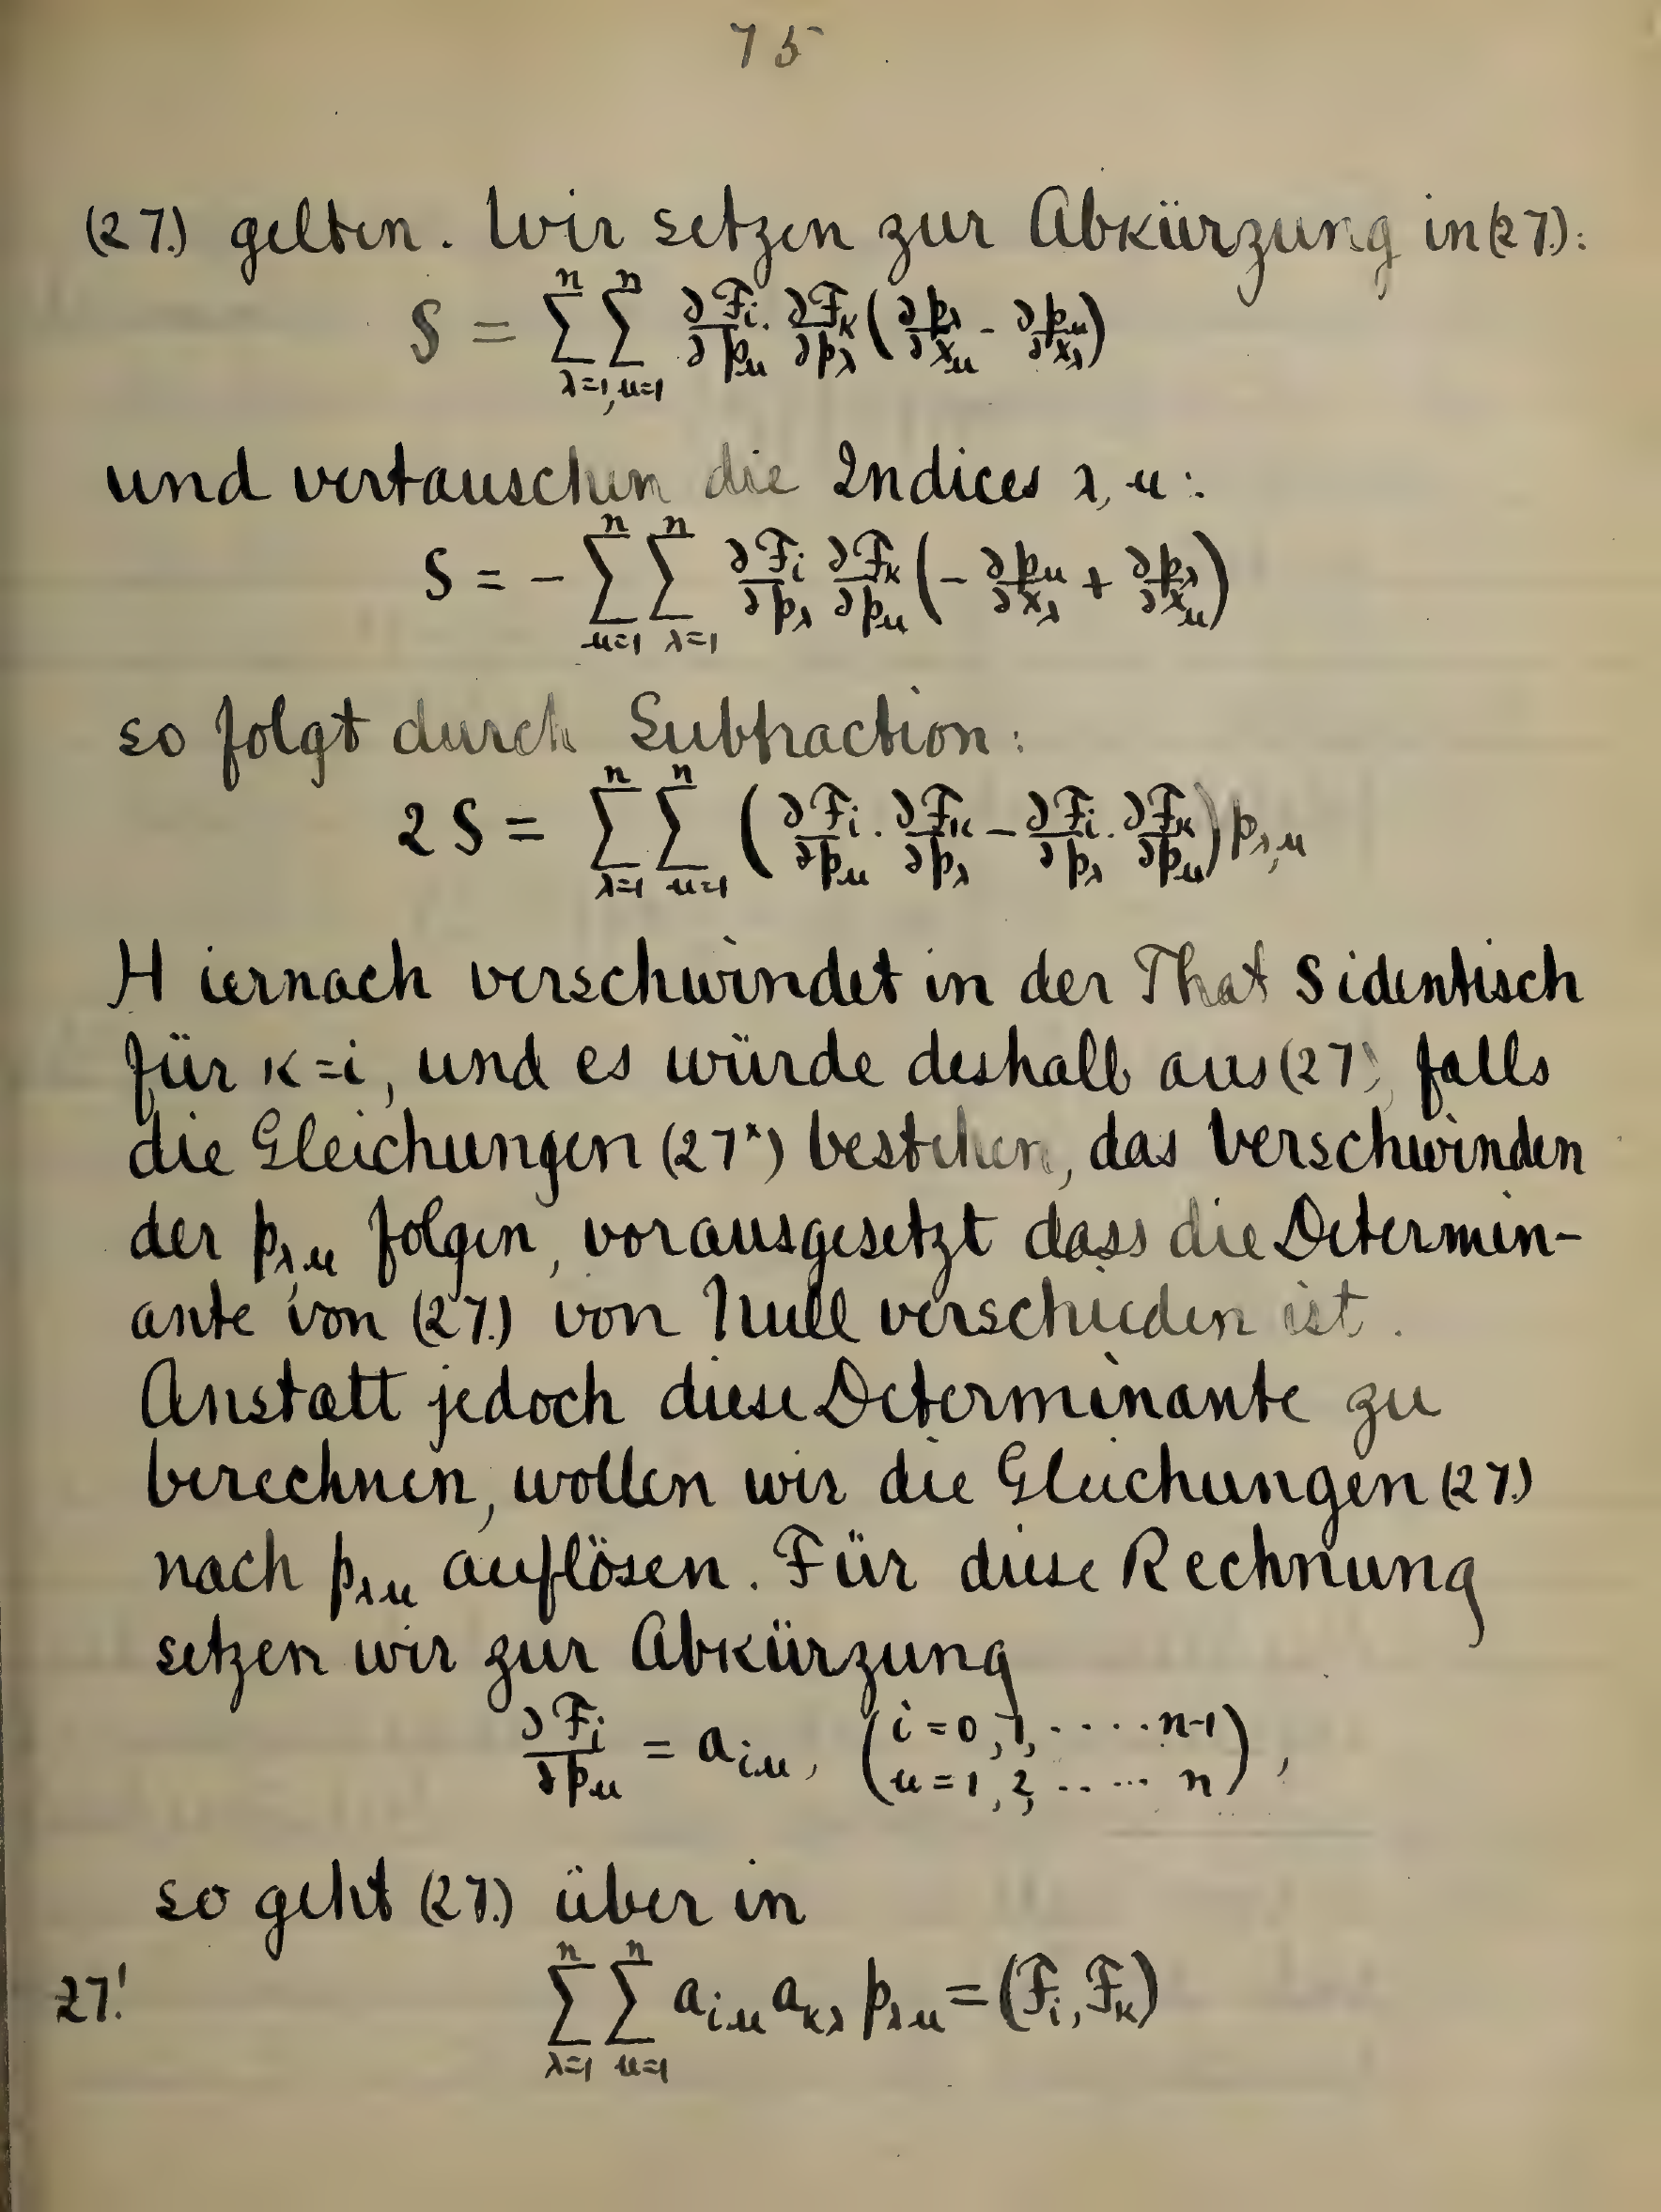 75
(27.) gelten. Wir setzen zur Abkürzung in (27.):
S = \sum_{λ=1,}^{n} \sum_{μ=1}^{n} \frac{∂F_i}{∂p_μ} · \frac{∂F_κ}{∂p_λ} ( \frac{∂p_λ}{∂x_μ} - \frac{∂p_μ}{∂x_λ} )
und vertauschen die Indices λ, μ:
S = - \sum_{μ=1}^{n} \sum_{λ=1}^{n} \frac{∂F_i}{∂p_λ} \frac{∂F_κ}{∂p_μ} ( - \frac{∂p_μ}{∂x_λ} + \frac{∂p_λ}{∂x_μ} )
so folgt durch Subtraction:
2 S = \sum_{λ=1}^{n} \sum_{μ=1}^{n} ( \frac{∂F_i}{∂p_μ} · \frac{∂F_κ}{∂p_λ} - \frac{∂F_i}{∂p_λ} · \frac{∂F_κ}{∂p_μ} ) p_{λ,μ}
Hiernach verschwindet in der That S identisch
für κ=i, und es würde deshalb aus (27), falls
die Gleichungen (27ˣ) bestehen, das Verschwinden
der p_{λ,μ} folgen, vorausgesetzt dass die Determin-
ante von (27.) von Null verschieden ist.
Anstatt jedoch diese Determinante zu
berechnen, wollen wir die Gleichungen (27.)
nach p_{λμ} auflösen. Für diese Rechnung
setzen wir zur Abkürzung
\frac{∂F_i}{∂p_μ} = a_{iμ}, ( i = 0, 1, ····· n-1 / μ = 1, 2, ····· n ),
so geht (27.) über in
27! \sum_{λ=1}^{n} \sum_{μ=1}^{n} a_{iμ} a_{κλ} p_{λμ} = (F_i, F_κ)